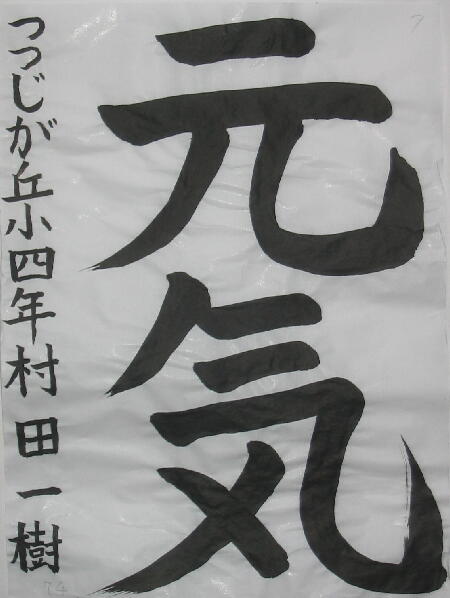 元気
つつじが丘小四年村田一樹
74